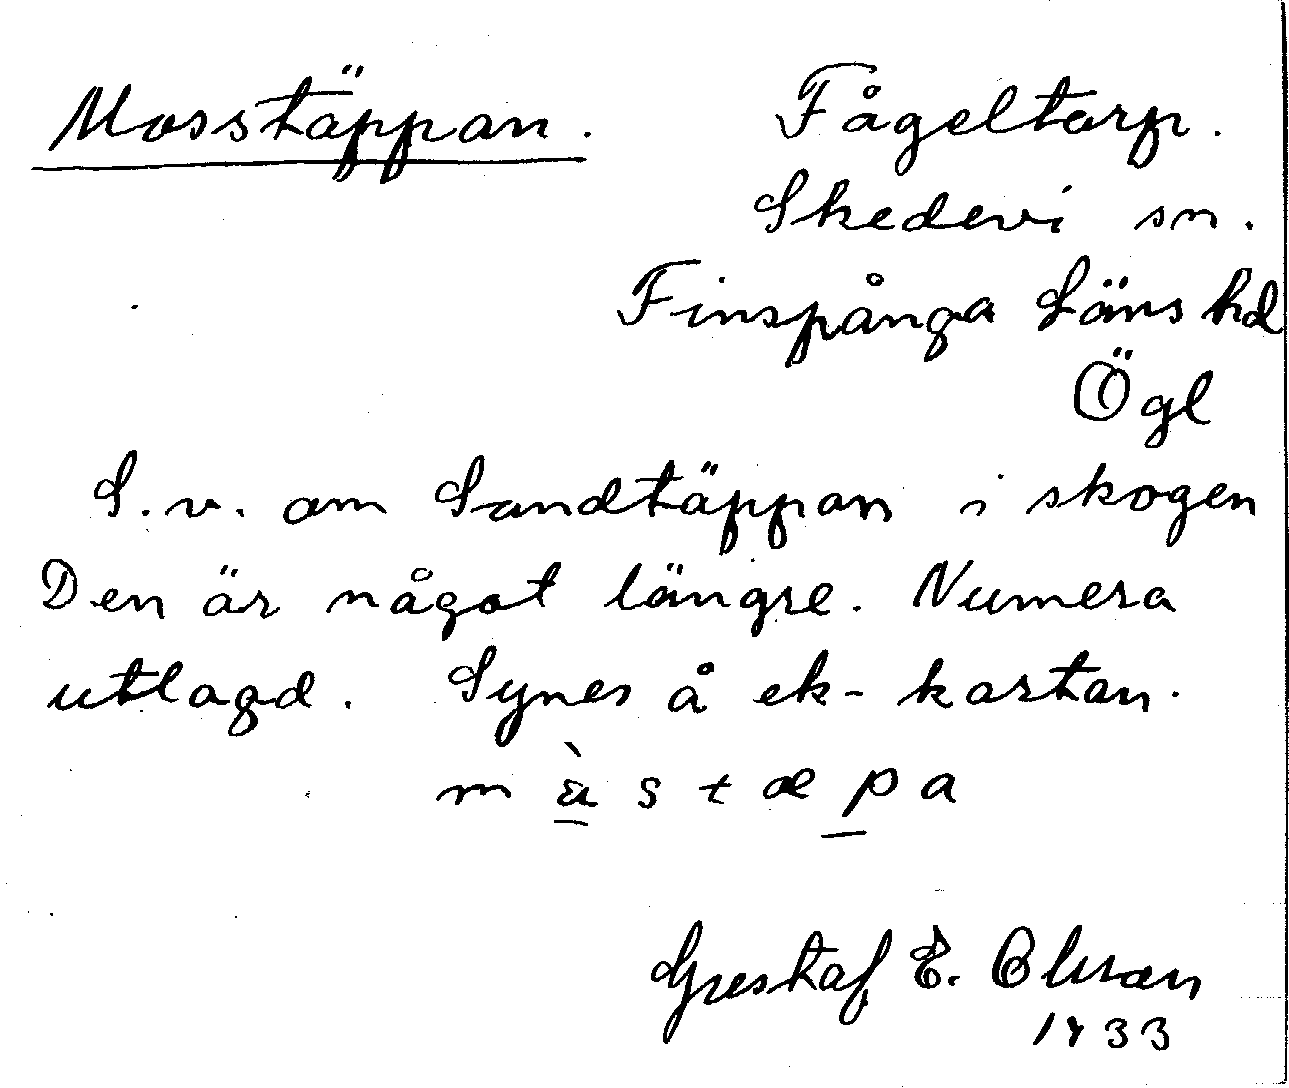 Mosstäppan. Fågeltorp.
Skedevi sn.
Finspånga Läns hd
Ögl
S.v. om Sandtäppan i skogen
Den är något längre. Numera
utlagd. Synes å ek-kartan.
Gustaf E. Olsson
1933